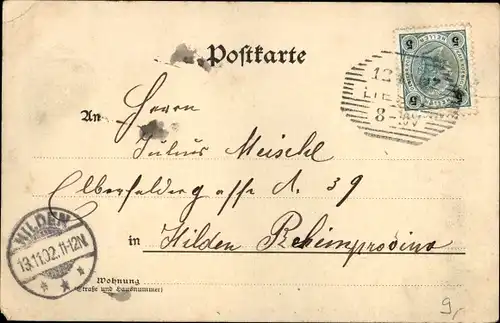 Postkarte
An
Herrn
Julius Meischl
Elberfeldergasse N. 39
in Hilden Rheinprovinz
Wohnung
(Straße und Hausnummer)
HILDEN
13.11.02.11-12N
* * *
5 5
5 5
12
8-
9,